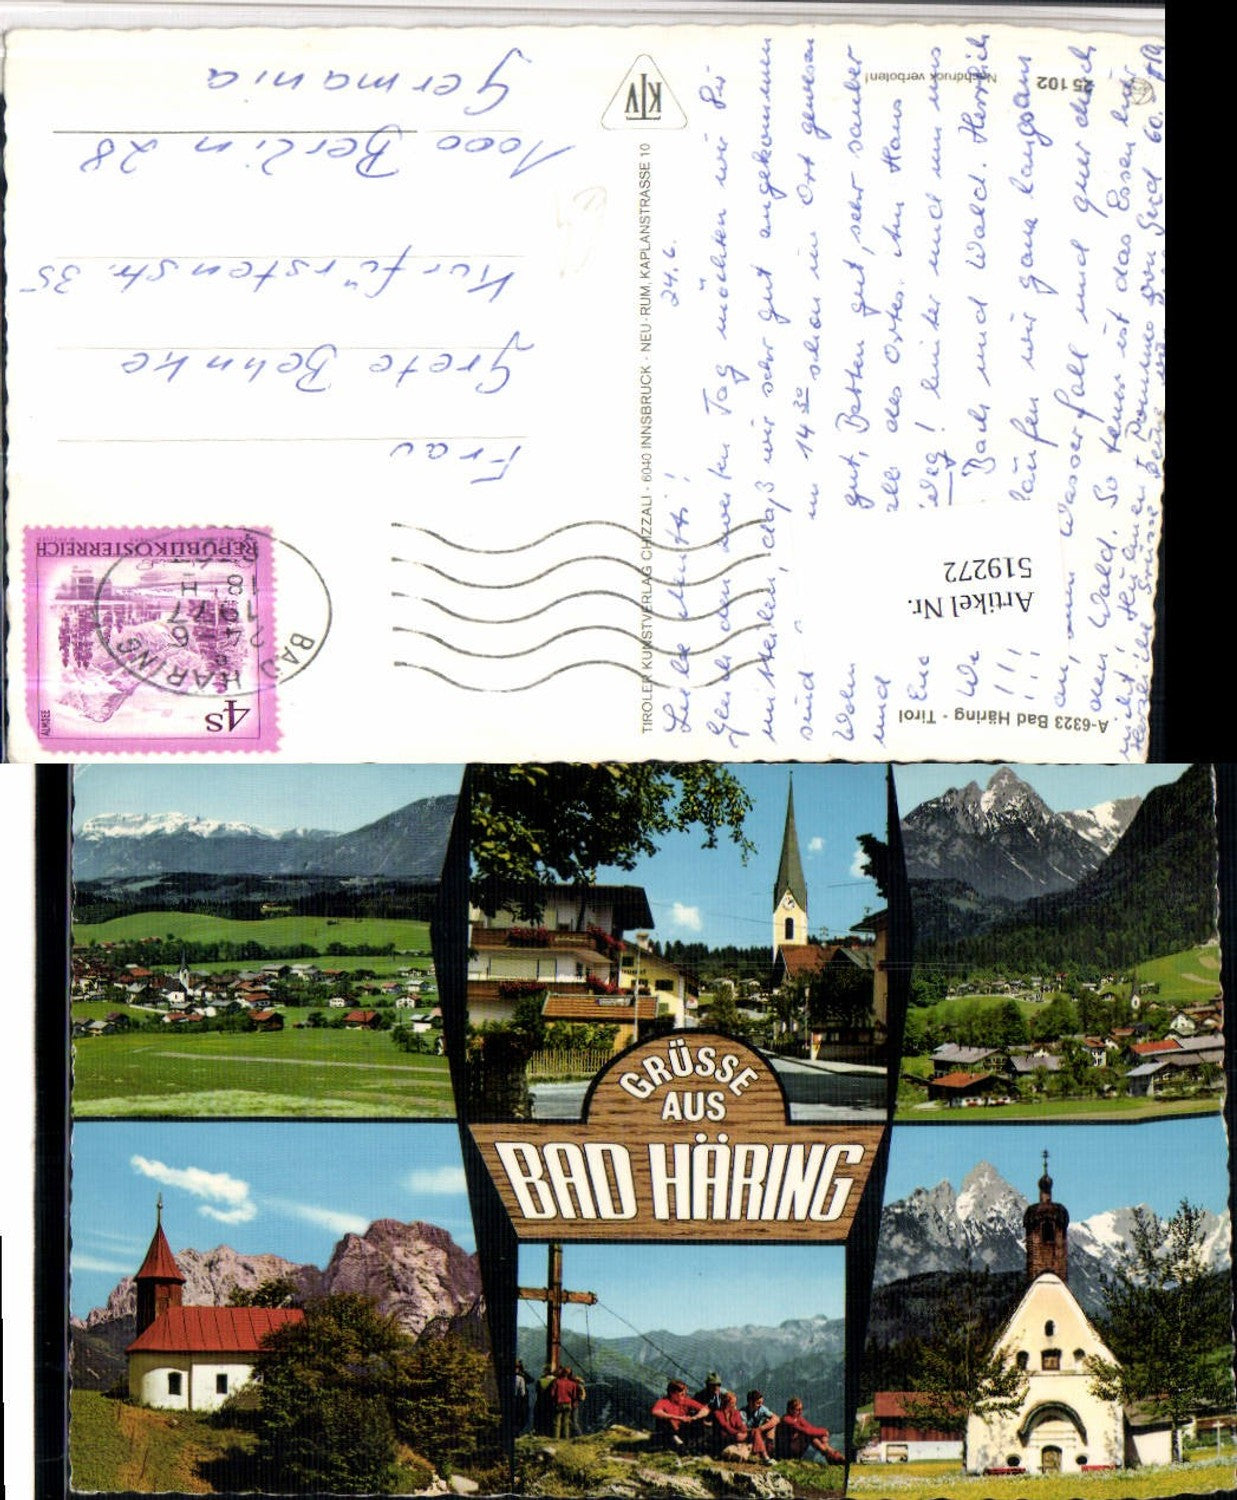 Germania
1000 Berlin 28
Kurfürstenstr. 35
Grete Behnke
Frau
REPUBLIK ÖSTERREICH
4S
ALMSEE
BAD HÄRING
24 6
1977
18 H
KTV
TIROLER KUNSTVERLAG CHIZZALI · 6040 INNSBRUCK · NEU-RUM, KAPLANSTRASSE 10
24.6.
Liebe
Gleich den zweiten Tag möchten wir Dir
mitteilen, daß wir sehr gut angekommen
sind um 14 30 schon im Ort gewesen
gut, Betten gut, sehr sauber
und alles des Ortes. Am Haus
Weg! hinter und um uns
Bach und Wald. Herrlich
!!! laufen wir ganz langsam
an, am Wasserfall und quer durch
den Wald. So teuer ist das Essen hier
nicht,
Herzliche Grüsse
Artikel Nr.
519272
25 102
Nachdruck verboten!
A-6323 Bad Häring - Tirol
GRÜSSE
AUS
BAD HÄRING